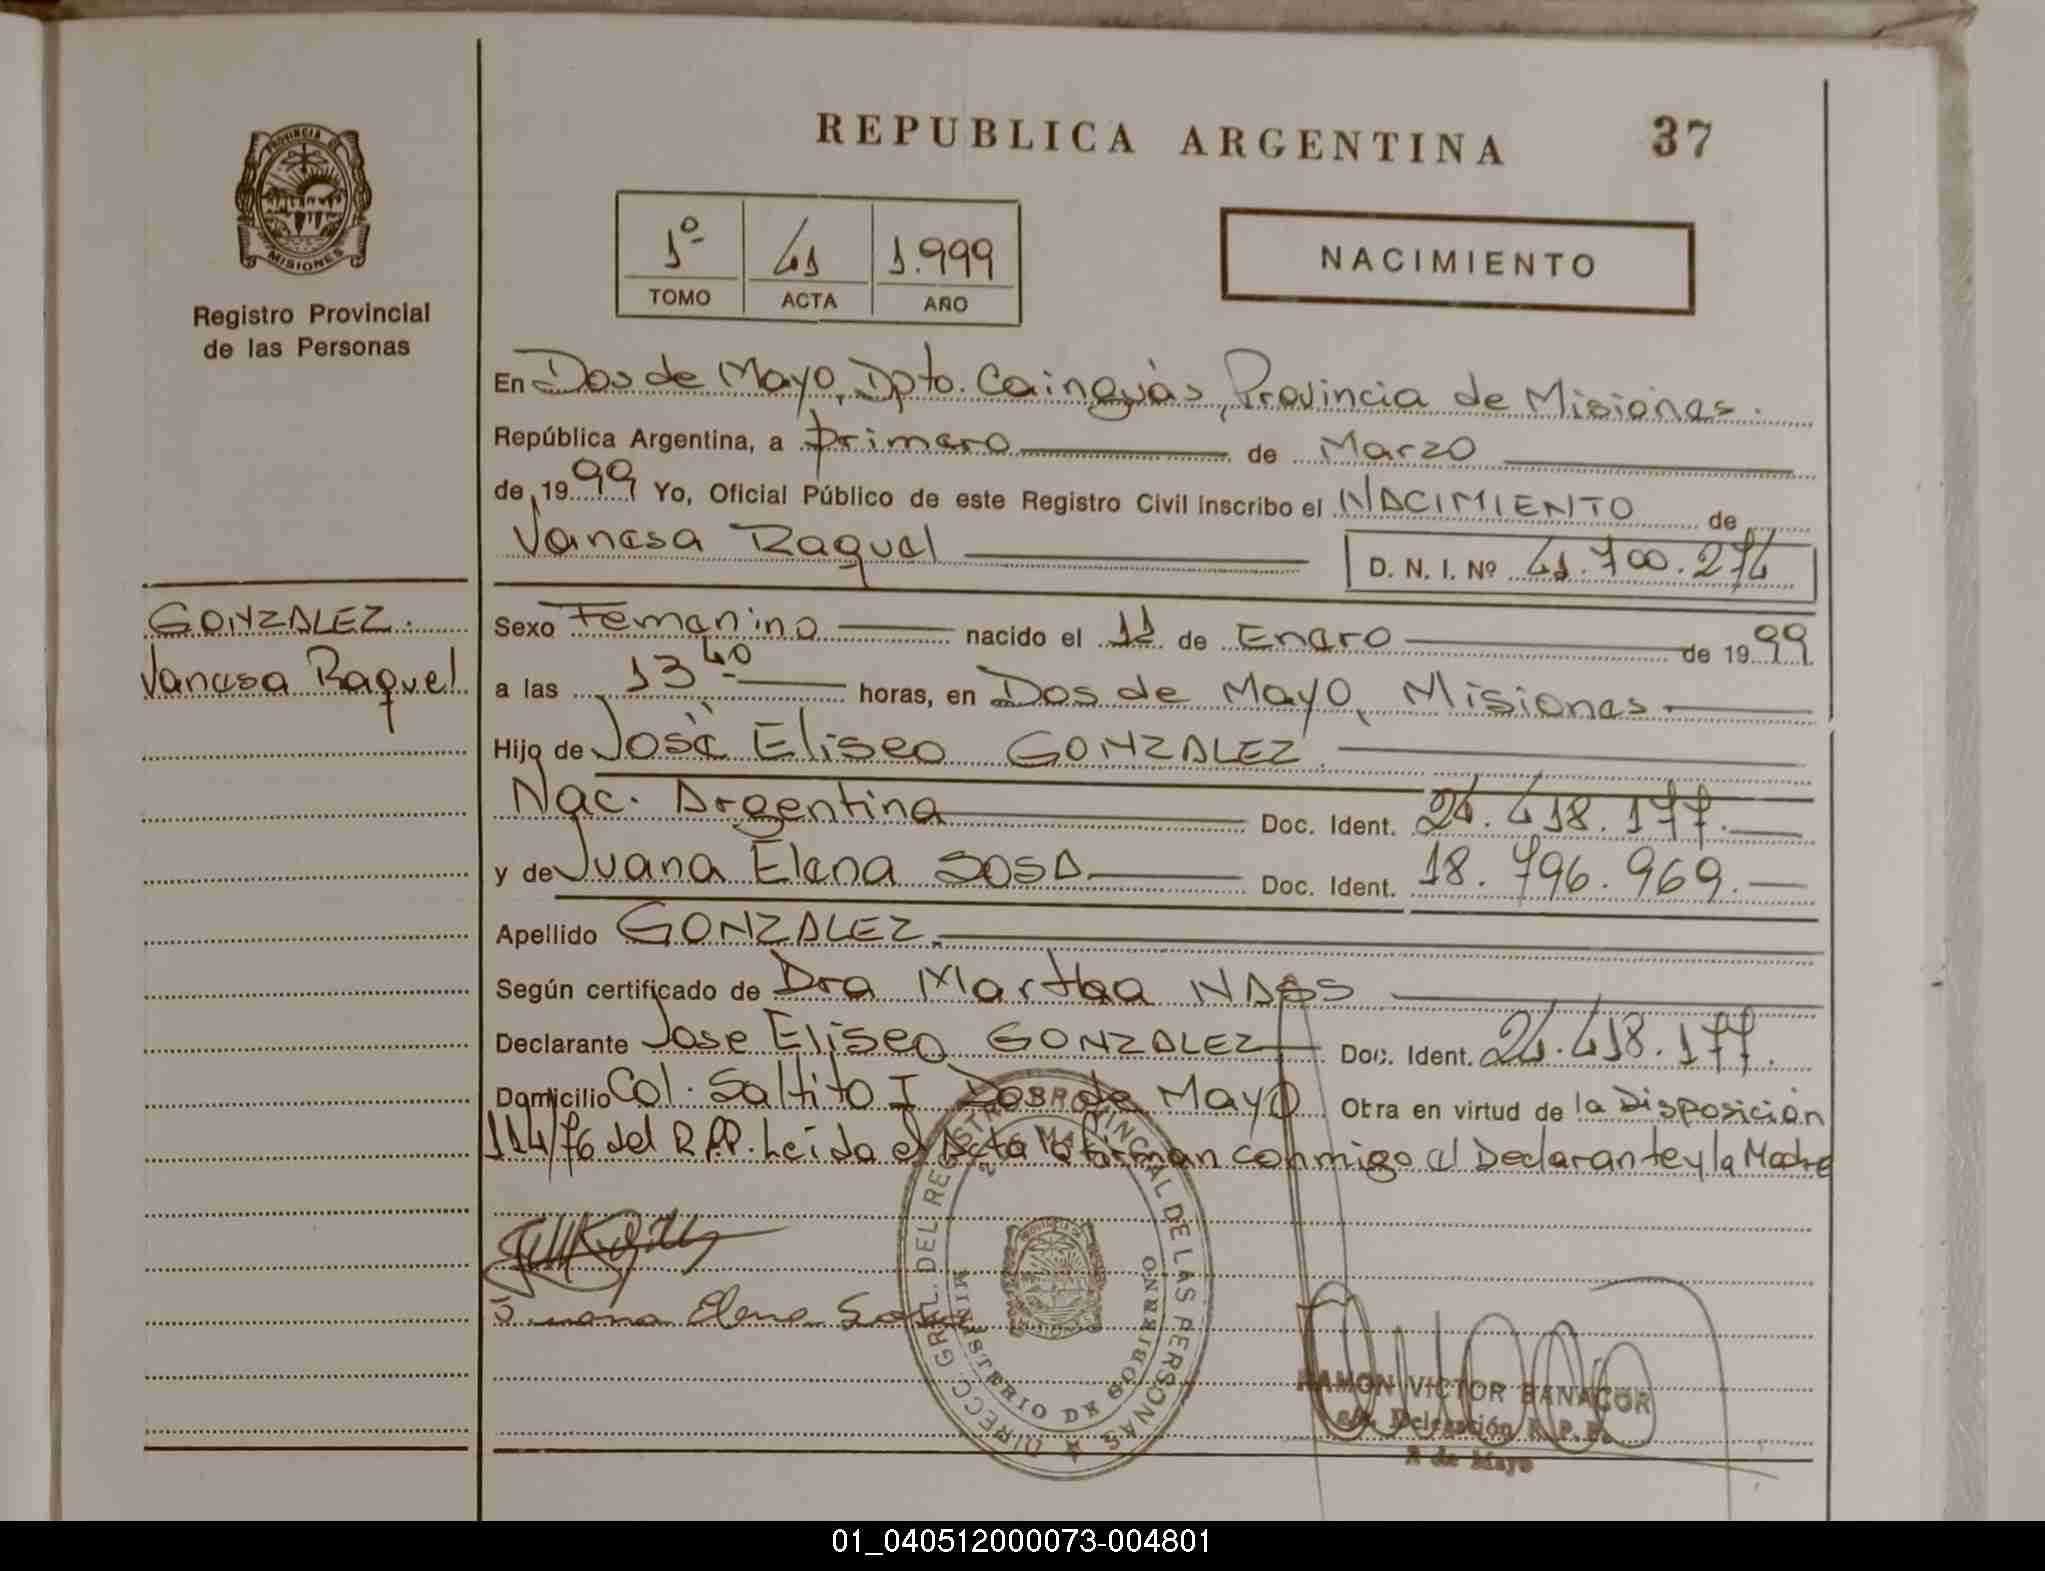 REPUBLICA ARGENTINA 37
PROVINCIA DE
MISIONES
Registro Provincial
de las Personas
1º 41 1.999
TOMO ACTA AÑO
NACIMIENTO
En Dos de Mayo, Dpto. Cainguás, Provincia de Misiones.
República Argentina, a primero de Marzo
de 1999 Yo, Oficial Público de este Registro Civil inscribo el NACIMIENTO de
Vanesa Raquel D. N. I. Nº 41.700.274
GONZALEZ.
Vanesa Raquel
Sexo Femenino nacido el 11 de Enero de 1999
a las 13 40 horas, en Dos de Mayo, Misiones
Hijo de José Eliseo GONZALEZ.
Nac. Argentina Doc. Ident. 24.418.177.
y de Juana Elena SOSA Doc. Ident. 18.796.969.
Apellido GONZALEZ.
Según certificado de Dra Martha
Declarante Jose Eliseo GONZALEZ Doc. Ident. 24.418.177.
Domicilio Col. Saltito I Dos de Mayo Otra en virtud de la Disposición
114/76 del R.P.P. Leida el Acta la firman conmigo el Declarante y la Madre
Juana Elena Sosa
DIRECC. GRAL. DEL REGISTRO PROVINCIAL DE LAS PERSONAS
MINISTERIO DE GOBIERNO
RAMON VICTOR
Delegación R. P. P.
2 de Mayo
01_040512000073-004801